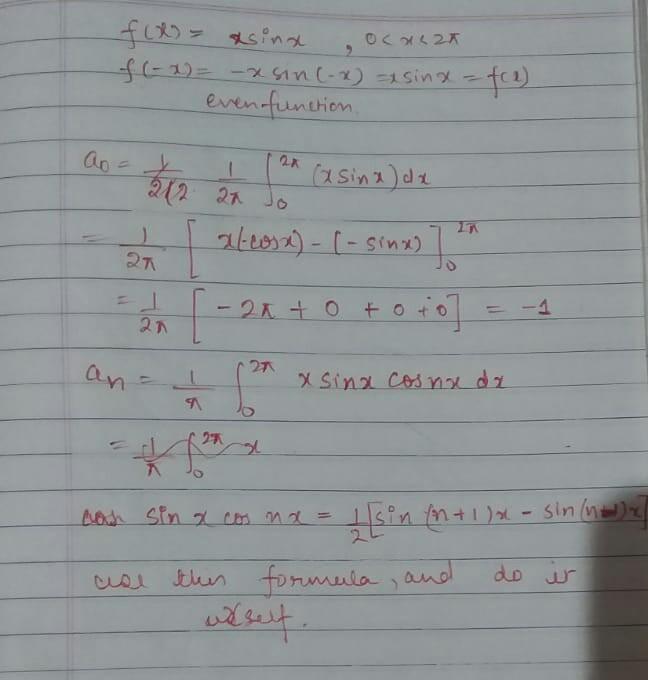 f(x) = x sin x , 0 < x < 2π
f(-x) = -x sin(-x) = x sin x = f(x)
even function.
a₀ = 1/2π ∫₀^2π (x sin x) dx
= 1/2π [ x(-cos x) - (-sin x) ]₀^2π
= 1/2π [ -2π + 0 + 0 + 0 ] = -1
aₙ = 1/π ∫₀^2π x sin x cos nx dx
= 1/π ∫₀^2π x
sin x cos nx = 1/2 [sin (n+1)x - sin (n-1)x]
use this formula, and do it